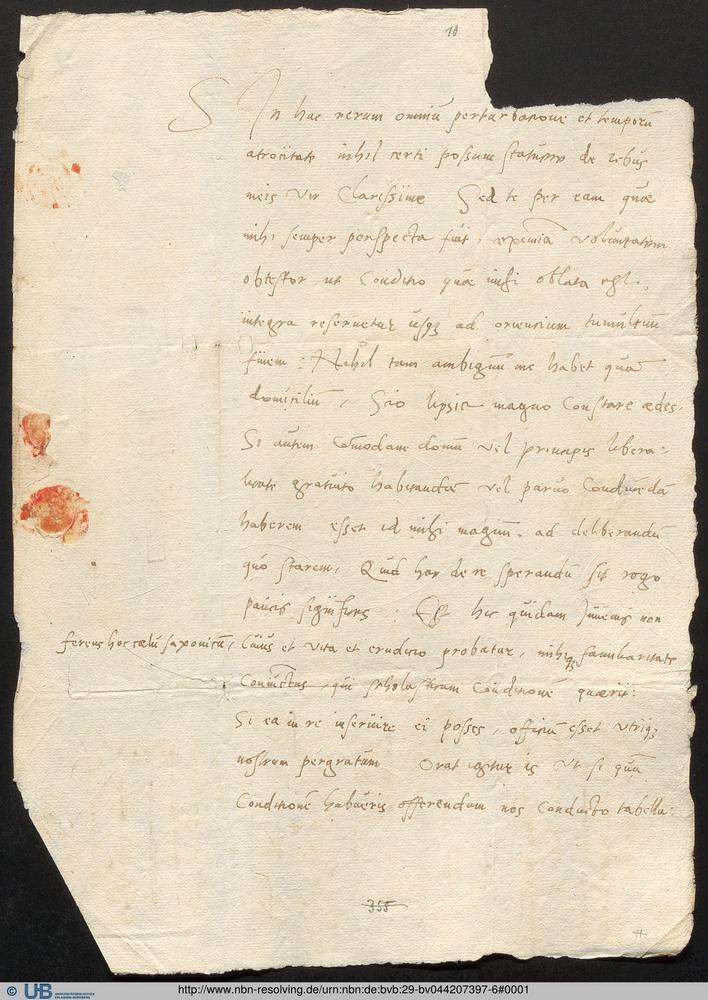 10
S In hac rerum omniū perturbatione et temporū
atrocitate nihil certi possum statuere de rebus
meis Vir Clarissime Sed te per eam quae
mihi semper perspecta fuit, eximia voluntatem
obtestor ut Conditio quae mihi oblata est,
integra reseruetur usq; ad oriensium tumultuū
finem: Nihil tam ambiguū me habet quā
domicilium, Scio lipsiae magno Constare aedes.
Si autem Cōmodam domū vel principis libera-
litate gratuito habitandā vel paruo Conducedā
haberem esset id mihi magnū ad deliberandū
quo starem, Quid hac de re sperandū sit rogo
paucis significes: Est hic quidam Iuuenis non
ferens hoc coelū saxonicū, Cuius et vita et eruditio probatur, mihiq; familiaritate
Coniunctus, qui scholasticam Conditionē quaerit:
Si ea in re inseruire ei posses, officiū esset utriq;
nostrum pergratum Orat igitur is Ut si quā
Conditionē habueris offerendam nos Conducto tabella-
355
UB
http://www.nbn-resolving.de/urn:nbn:de:bvb:29-bv044207397-6#0001